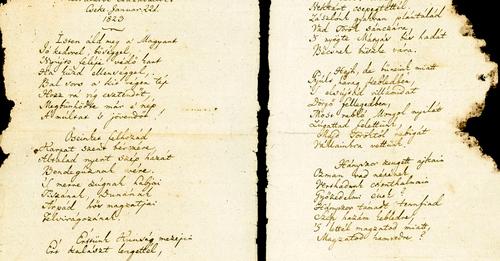 Cseke, Január. 22d.
1823
Isten áldd meg a Magyart
Jó kedvvel, bőséggel,
Nyújts feléje védő kart
Ha küzd ellenséggel;
Bal sors a kit régen tép
Hozz rá víg esztendőt,
Megbűnhődte már e nép
A múltat s jövendőt!
Őseinket felhozád
Kárpát szent bérczére,
Általad nyert szép hazát
Bendegúznak vére.
'S merre zúgnak habjai
Tiszának, Dunának,
Árpád hős magzatjai
Felvirágozának.
Értünk Kunság mezején
Ért kalászt lengettél,
Nektárt csepegtettél.
Zászlónk gyakran plántálád
Vad Török sánczára,
'S nyögte Mátyás bús hadát
Bécsnek büszke vára.
Hajh, de bűneink miatt
Gyúlt harag kebledben,
'S elsújtád villámidat
Dörgő fellegedben,
Most rabló Mongol nyilát
Zúgattad felettünk,
Majd Töröktől rabigát
Vállainkra vettünk.
Hányszor zengett ajkain
Ozman vad népének
Vert hadunk csonthalmain
Győzedelmi ének!
Hányszor támadt tenfiad
Szép hazám kebledre,
'S lettél magzatod miatt,
Magzatod hamvedre?